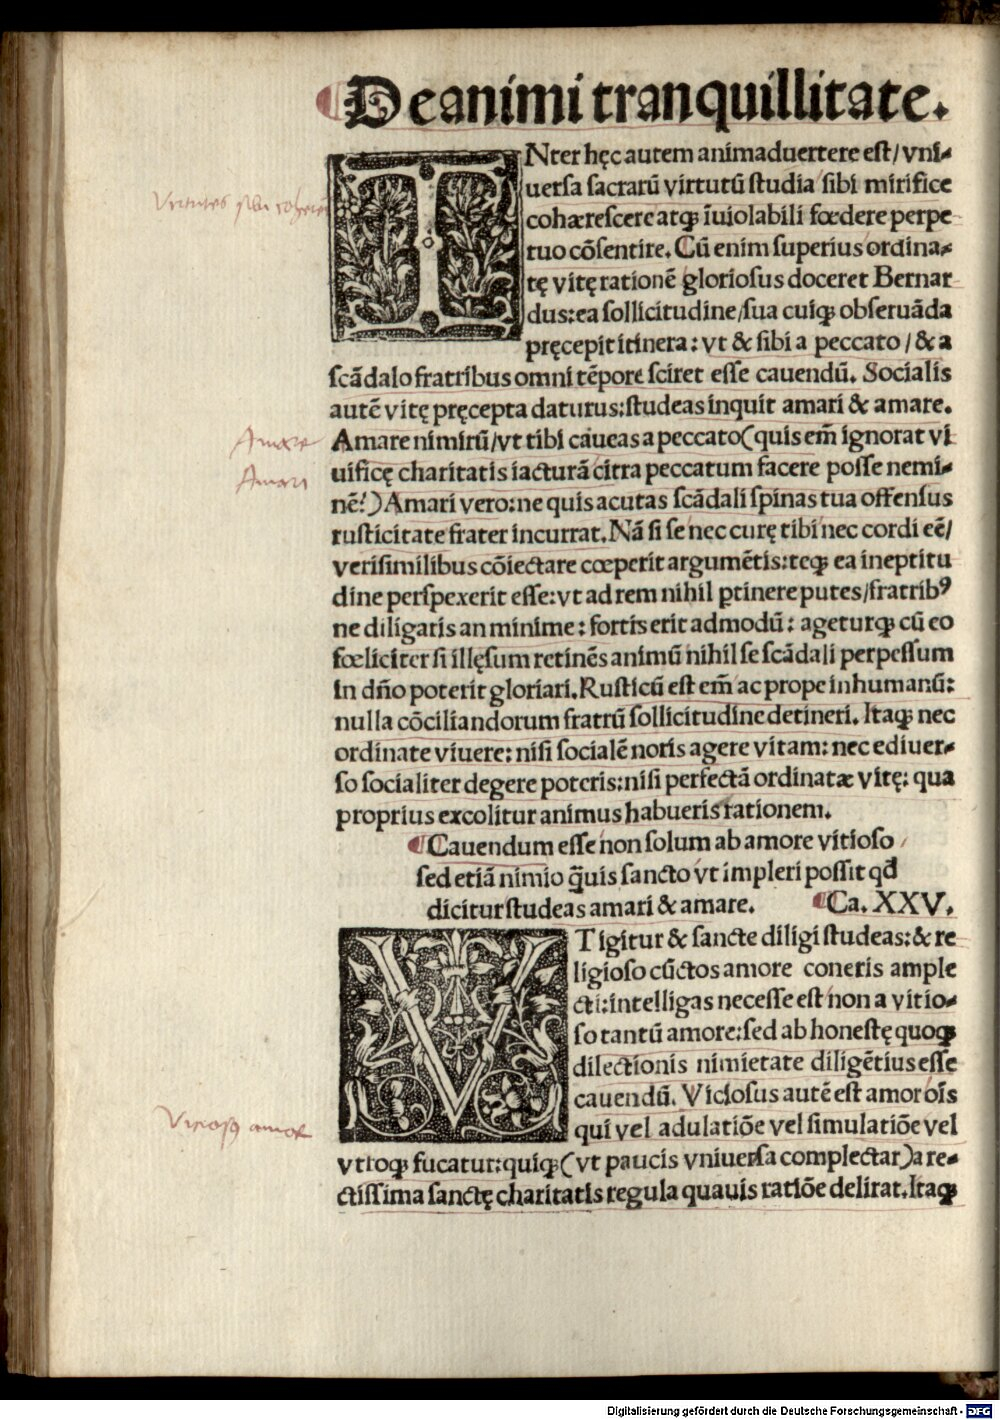 De animi tranquillitate.
INter hęc autem animaduertere est/ vni-
uersa sacrarū virtutū studia sibi mirifice
cohærescere atqꝫ īuiolabili fœdere perpe
tuo cōsentire. Cū enim superius ordina-
tę vitę rationē gloriosus doceret Bernar
dus: ea sollicitudine/ sua cuiqꝫ obseruāda
pręcepit itinera: vt & sibi a peccato / & a
scādalo fratribus omni tēpore sciret esse cauendū. Socialis
autē vitę pręcepta daturus: studeas inquit amari & amare.
Amare nimirū/ vt tibi caueas a peccato (quis em̄ ignorat vi
uificę charitatis iacturā citra peccatum facere posse nemi-
nē?) Amari vero: ne quis acutas scādali spinas tua offensus
rusticitate frater incurrat. Nā si se nec curę tibi nec cordi eē/
verisimilibus cōiectare cœperit argumētis: teqꝫ ea ineptitu
dine perspexerit esse: vt ad rem nihil ꝑtinere putes/ fratribꝰ
ne diligaris an minime: fortis erit admodū: ageturqꝫ cū eo
fœliciter si illęsum retinēs animū nihil se scādali perpessum
in dño poterit gloriari. Rusticū est em̄ ac prope inhumanū:
nulla cōciliandorum fratrū sollicitudine detineri. Itaqꝫ nec
ordinate viuere: nisi socialē noris agere vitam: nec ediuer-
so socialiter degere poteris: nisi perfectā ordinatæ vitę: qua
proprius excolitur animus habueris rationem.
Cauendum esse non solum ab amore vitioso /
sed etiā nimio q̄uis sancto vt impleri possit qđ
dicitur studeas amari & amare. Ca. XXV.
VT igitur & sancte diligi studeas: & re
ligioso cūctos amore coneris ample
cti: intelligas necesse est non a vitio-
so tantū amore: sed ab honestę quoqꝫ
dilectionis nimietate diligētius esse
cauendū. Viciosus autē est amor oīs
qui vel adulatiōe vel simulatiōe vel
vtroqꝫ fucatur: quiqꝫ (vt paucis vniuersa complectar) a re-
ctissima sanctę charitatis regula quauis ratiōe delirat. Itaqꝫ
Virtutes sibi
Amare
Amari
Viciosꝰ amor
Digitalisierung gefördert durch die Deutsche Forschungsgemeinschaft - DFG